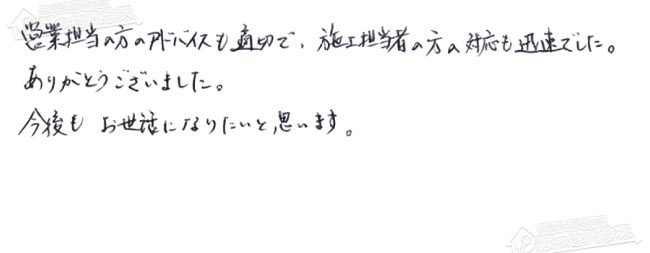 営業担当の方のアドバイスも適切で、施工担当者の方の対応も迅速でした。
ありがとうございました。
今後も お世話になりたいと思います。
ほっとハウス